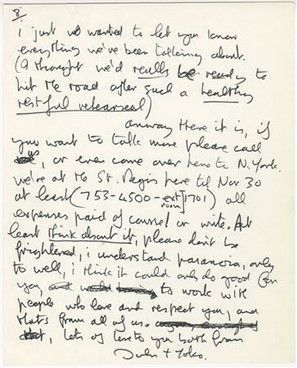 8/
i just wanted to let you know
everything we've been talking about.
(i thought we'd really be ready to
hit the road after such a healthy
restful rehearsal)
anyway there it is, if
you want to talk more please call
us, or even come over here to N. York.
we're at the St. Regis here til Nov 30
at least (753-4500 - ext/room 1701) all
expenses paid of course! or write. At
least think about it, please don't be
frightened, i understand paranoia, only
to well, i think it could only do good for
you to work with
people who love and respect you, and
thats from all of us.
lots of love to you both from
John + Yoko.